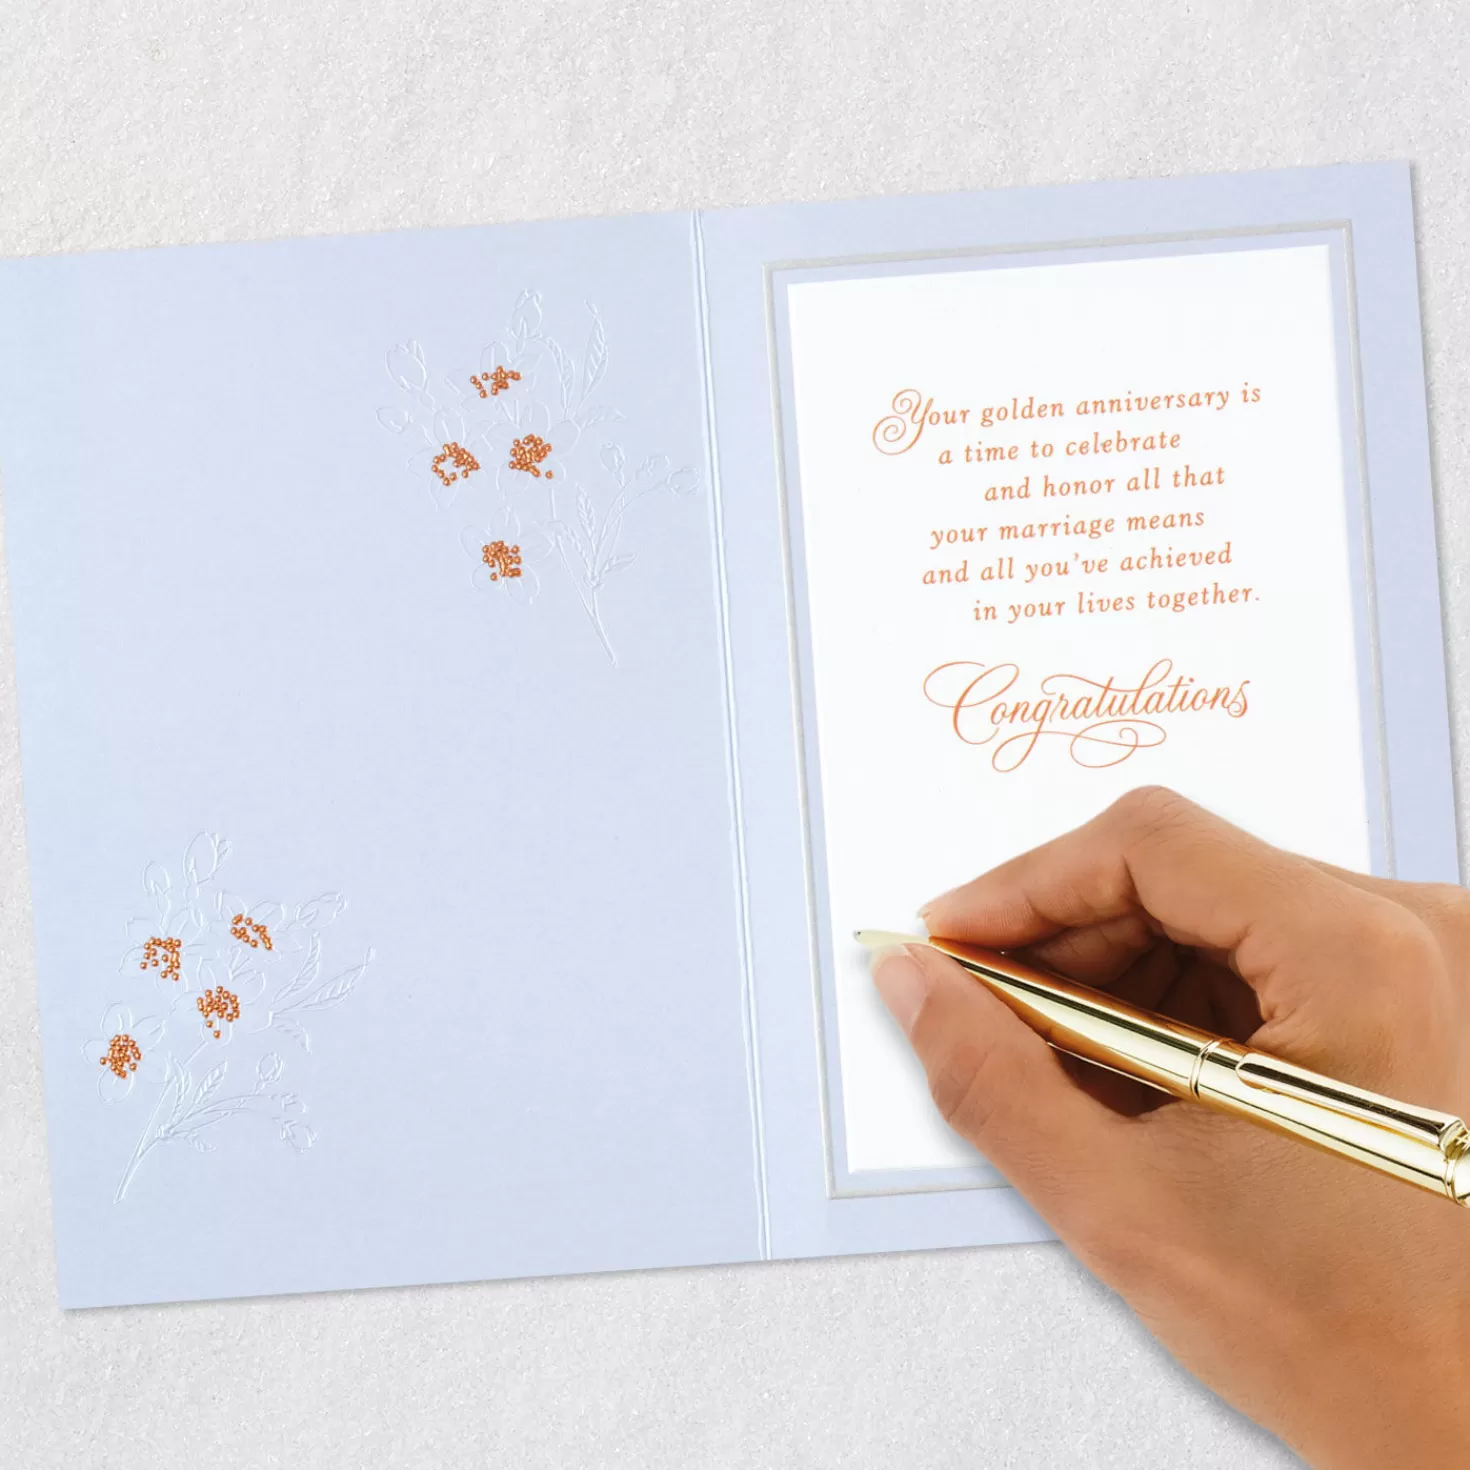 Your golden anniversary is
a time to celebrate
and honor all that
your marriage means
and all you've achieved
in your lives together.
Congratulations